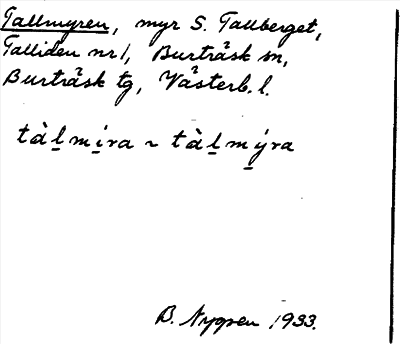 Tallmyren, myr S. Tallberget,
Talliden nr 1, Burträsk sn,
Burträsk tg, Västerb. l.
tàl̲mi̲ra ~ tàl̲mý̲ra
B. Nygren 1933.